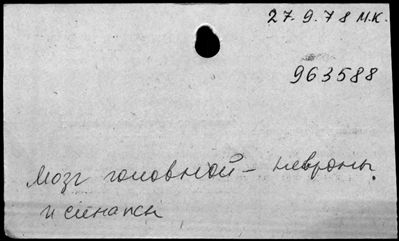 27.9.78 М.К.
963588
Мозг головной - невроны
и синапсы